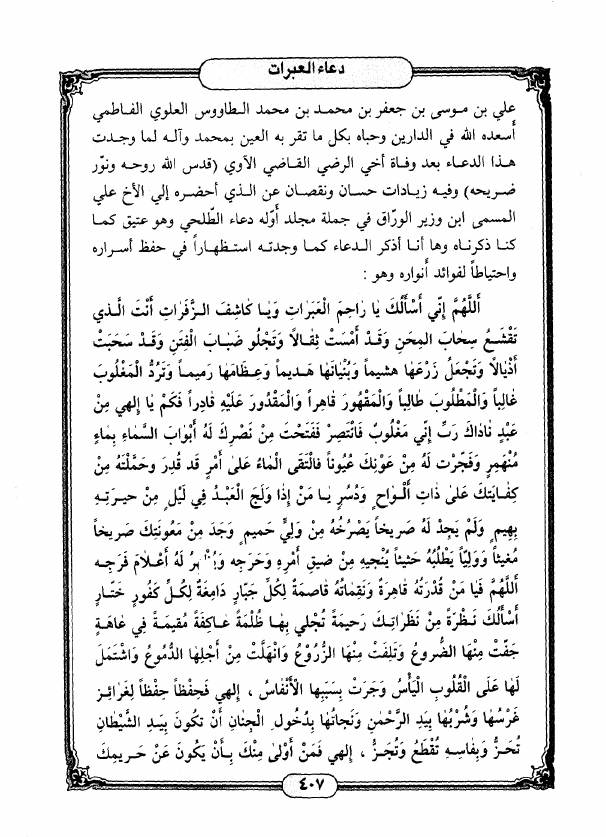 دعاء العبرات
علي بن موسى بن جعفر بن محمد بن محمد الطاووس العلوي الفاطمي
أسعده الله في الدارين وحباه بكل ما تقر به العين بمحمد وآله لما وجدت
هذا الدعاء بعد وفاة أخي الرضي القاضي الآوي (قدس الله روحه ونوّر
ضريحه) وفيه زيادات حسان ونقصان عن الذي أحضره إلي الأخ علي
المسمى ابن وزير الورّاق في جملة مجلد أوّله دعاء الطّلحي وهو عتيق كما
كنا ذكرناه وها أنا أذكر الدعاء كما وجدته استظهاراً في حفظ أسراره
واحتياطاً لفوائد أنواره وهو :
أَللَّهُمَّ إِنّي أَسْأَلُكَ يا رٰاحِمَ العَبَراتِ وَيٰا كٰاشِفَ الزَّفَرٰاتِ أَنْتَ الَّذي
تَقْشَعُ سِحابَ المِحَنِ وَقَدْ أَمْسَتْ ثِقٰالاً وَتَجْلُو ضَبٰابَ الْفِتَنِ وَقَدْ سَحَبَتْ
أَذْيٰالاً وَتَجْعَلُ زَرْعَهٰا هشيماً وَبُنْيٰانَهٰا هَديماً وَعِظٰامَهٰا رَميماً وَتَرُدُّ الْمَغْلُوبَ
غٰالِباً وَالْمَطْلُوبَ طٰالِباً وَالْمَقْهُورَ قٰاهِراً وَالْمَقْدُورَ عَلَيْهِ قٰادِراً فَكَمْ يٰا إلهي مِنْ
عَبْدٍ نٰادٰاكَ رَبِّ إِنّي مَغْلُوبٌ فَانْتَصِرْ فَفَتَحْتَ مِنْ نَصْرِكَ لَهُ أَبْوٰابَ السَّمٰاءِ بِمٰاءٍ
مُنْهَمِرٍ وَفَجَّرْتَ لَهُ مِنْ عَوْنِكَ عُيُوناً فَالْتَقَى الْمٰاءُ عَلىٰ أَمْرٍ قَد قُدِرَ وَحَمَّلْتَهُ مِنْ
كِفٰايَتِكَ عَلىٰ ذٰاتِ أَلْوٰاحٍ وَدُسُرٍ يٰا مَنْ إِذٰا وَلَجَ الْعَبْدُ فِي لَيْلٍ مِنْ حيرَتِهِ
بِهِيمٍ وَلَمْ يَجِدْ لَهُ صَريخاً يَصْرُخُهُ مِنْ وَلِيٍّ حَميمٍ وَجَدَ مِنْ مَعُونَتِكَ صَريخاً
مُغيثاً وَوَلِيّاً يَطْلُبُهُ حَثيثاً يُنْجيهِ مِنْ ضيقِ أَمْرِهِ وَحَرَجِهِ لَهُ أَعْلاٰمَ فَرَجِهِ
أَللَّهُمَّ فَيٰا مَنْ قُدْرَتُهُ قٰاهِرَةٌ وَنَقِمٰاتُهُ قٰاصِمَةٌ لِكُلِّ جَبّٰارٍ دٰامِغَةٌ لِكُلِّ كَفُورٍ خَتّٰارٍ
أَسْأَلُكَ نَظْرَةً مِنْ نَظَرٰاتِكَ رَحيمَةً تُجْلي بِهٰا ظُلْمَةً عٰاكِفَةً مُقيمَةً فِي عٰاهَةٍ
جَفَّتْ مِنْهَا الضُّرُوعُ وَتَلِفَتْ مِنْهَا الزُّرُوعُ وَانْهَلَّتْ مِنْ أَجْلِهَا الدُّمُوعُ وَاشْتَمَلَ
لَهٰا عَلَى الْقُلُوبِ الْيَأْسُ وَجَرَتْ بِسَبَبِهَا الْأَنْفٰاسُ ، إلهي فَحِفْظاً حِفْظاً لِغَرٰائِزَ
غَرْسُهٰا وَشُرْبُهٰا بِيَدِ الرَّحْمٰنِ وَنَجٰاتُهٰا بِدُخُولِ الْجِنٰانِ أَنْ تَكُونَ بِيَدِ الشَّيْطٰانِ
تُحَزُّ وَبِفَاسِهِ تُقْطَعُ وَتُجَزُّ ، إلهي فَمَنْ أَوْلىٰ مِنْكَ بِأَنْ يَكُونَ عَنْ حَريمِكَ
٤٠٧